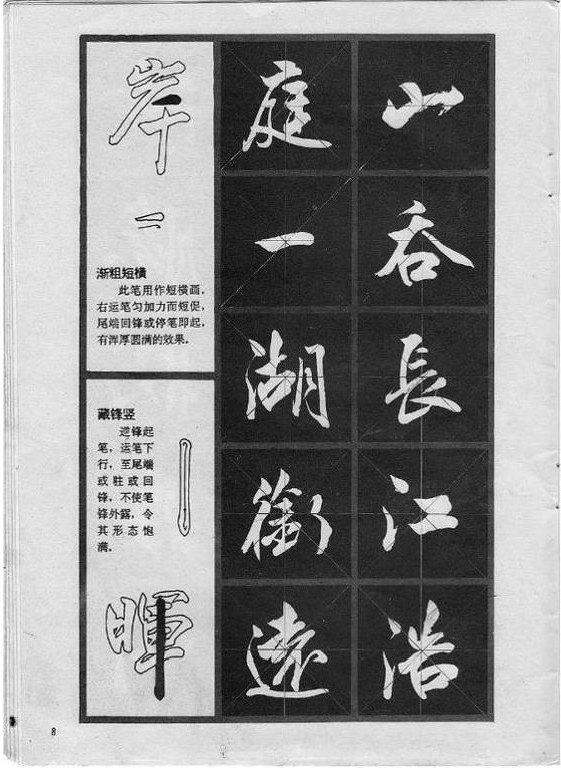 岸
渐粗短横
此笔用作短横画，
右运笔匀加力而短促，
尾端回锋或停笔即起，
有浑厚圆满的效果。
藏锋竖
逆锋起
笔，运笔下
行，至尾端
或驻或回
锋，不使笔
锋外露，令
其形态饱
满。
暉
庭一湖銜遠
山吞長江浩
8